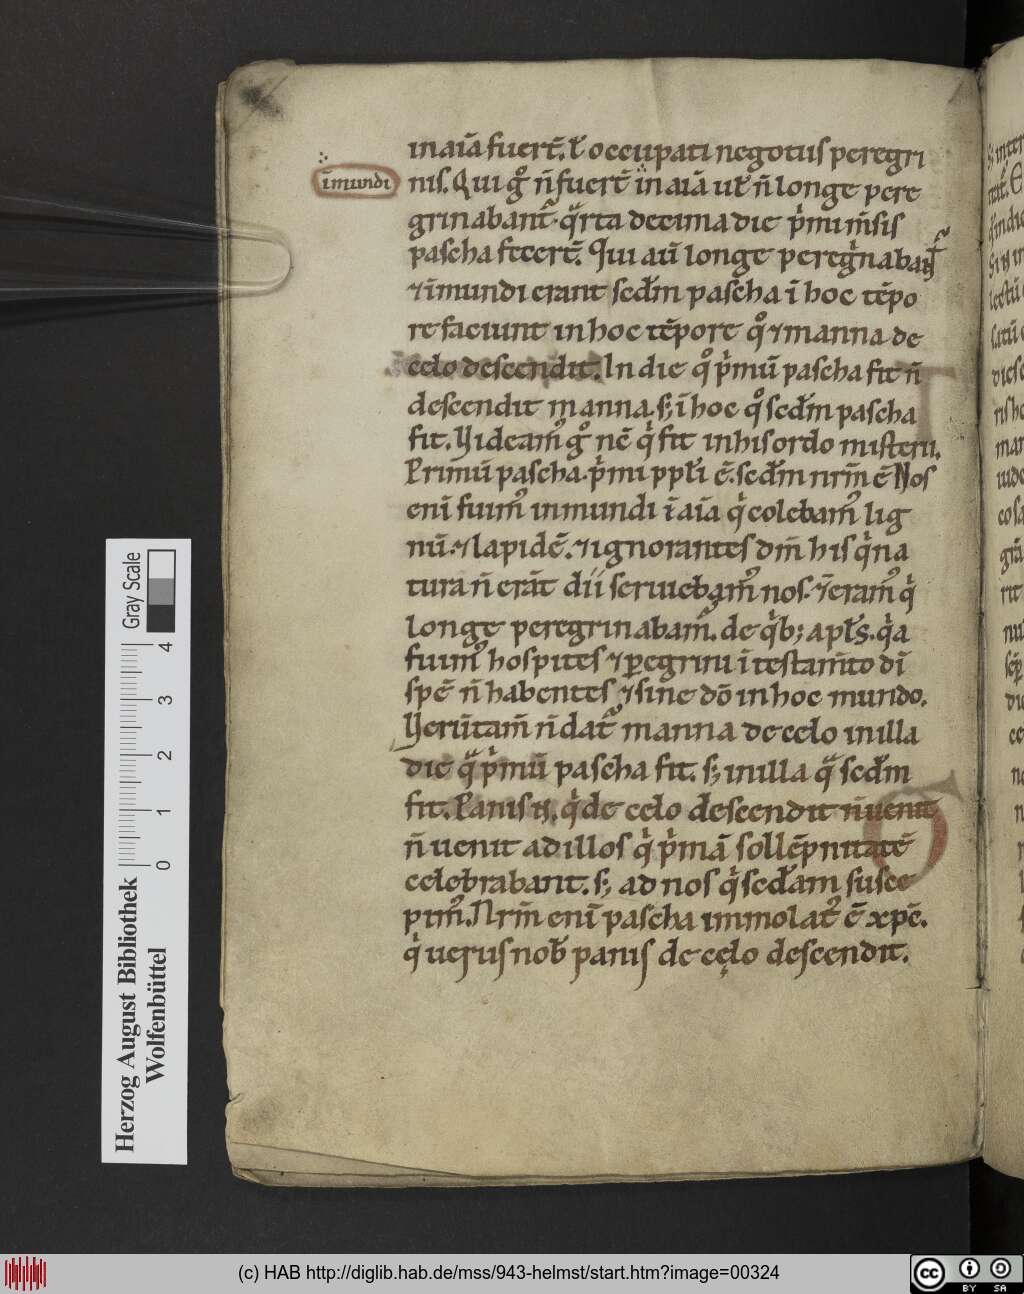 in aīā fuert̄. ł occupati negotiis peregri
īmundi
nis. Qui g̊ n̄ fuert̄ in aīā ut̄ n̄ longe pere
grinabant̄. qͣrta decima die pͥmi m̄sis
pascha fecert̄. Qui au̅ longe peregͥnabant̄
⁊ īmundi erant scd̄m pascha ī hoc tēpo
re faciunt in hoc tēpore qͦ ⁊ manna de
celo descendit. In die qͦ pͥmū pascha fit n̄
descendit manna. s; ī hoc qͦ scd̄m pascha
fit. Videamꝰ g̊ nē qͥ fit in his ordo misterii.
Primū pascha. pͥmi ppłi ē. scd̄m nrm̄ ē Nos
enī fuimꝰ inmundi ī aīa qͥ colebamꝰ lig
nū. ⁊ lapidē. ⁊ ignorantes dm̄ his qͥ na
tura n̄ erāt dii seruiebamꝰ nos. ⁊ eramꝰ qͥ
longe peregrinabamꝰ. de qͥb; apłs. qͥa
fuimꝰ hospites ⁊ ꝑegrini ī testam̄to di
spē n̄ habentes ⁊ sine dō in hoc mundo.
Verūtam̄ n̄ dat̄ manna de celo in illa
die qͣ pͥmū pascha fit. s; in illa qͣ scd̄m
fit. Panis is. qͥ de celo descendit n̄ uenit
n̄ uenit ad illos qͥ pͥmā sollēpnitatē
celebrabant. s; ad nos qͥ scd̄am susce
pimꝰ. Nrm̄ enī pascha immolatꝰ ē xpē.
qͥ uerus nob̄ panis de celo descendit.
Herzog August Bibliothek
Wolfenbüttel
0 1 2 3 4
Gray Scale
(c) HAB http://diglib.hab.de/mss/943-helmst/start.htm?image=00324
cc BY SA